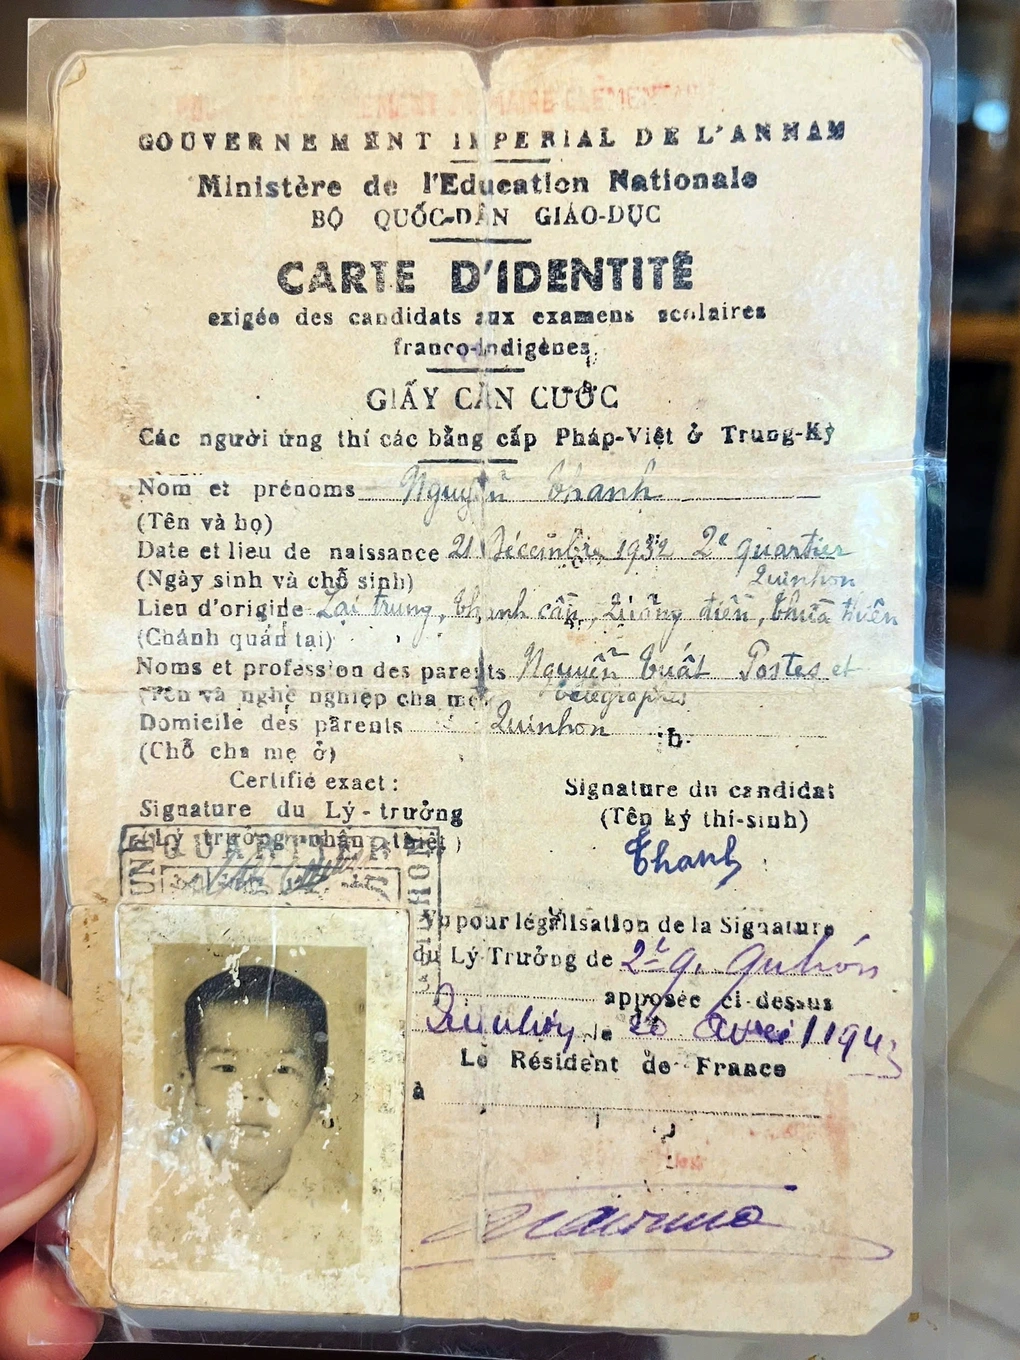 GOUVERNEMENT IMPERIAL DE L'ANNAM
Ministère de l'Education Nationale
BỘ QUỐC-DÂN GIÁO-DỤC
CARTE D'IDENTITÉ
exigée des candidats aux examens scolaires
franco-indigènes
GIẤY CĂN CƯỚC
Các người ứng thí các bằng cấp Pháp-Việt ở Trung-Kỳ
Nom et prénoms Nguyễn Thanh
(Tên và họ)
Date et lieu de naissance 21 Décembre 1932 2e quartier
(Ngày sinh và chỗ sinh) Quinhon
Lieu d'origine Lại trung, Thanh cần, Quảng điền, Thừa thiên
(Chánh quán tại)
Noms et profession des parents Nguyễn Tuất Postes et
(Tên và nghề nghiệp cha mẹ) télégraphes
Domicile des parents Quinhon
(Chỗ cha mẹ ở)
Certifié exact :
Signature du candidat
Signature du Lý-trưởng
(Tên ký thí-sinh)
(Lý trưởng nhận thiệt)
Thanh
QUARTIER
Vu pour légalisation de la Signature
du Lý-Trưởng de 2e q. Quinhon
apposée ci-dessus
Quinhon, le 20 Avril 194
Le Résident de France
à